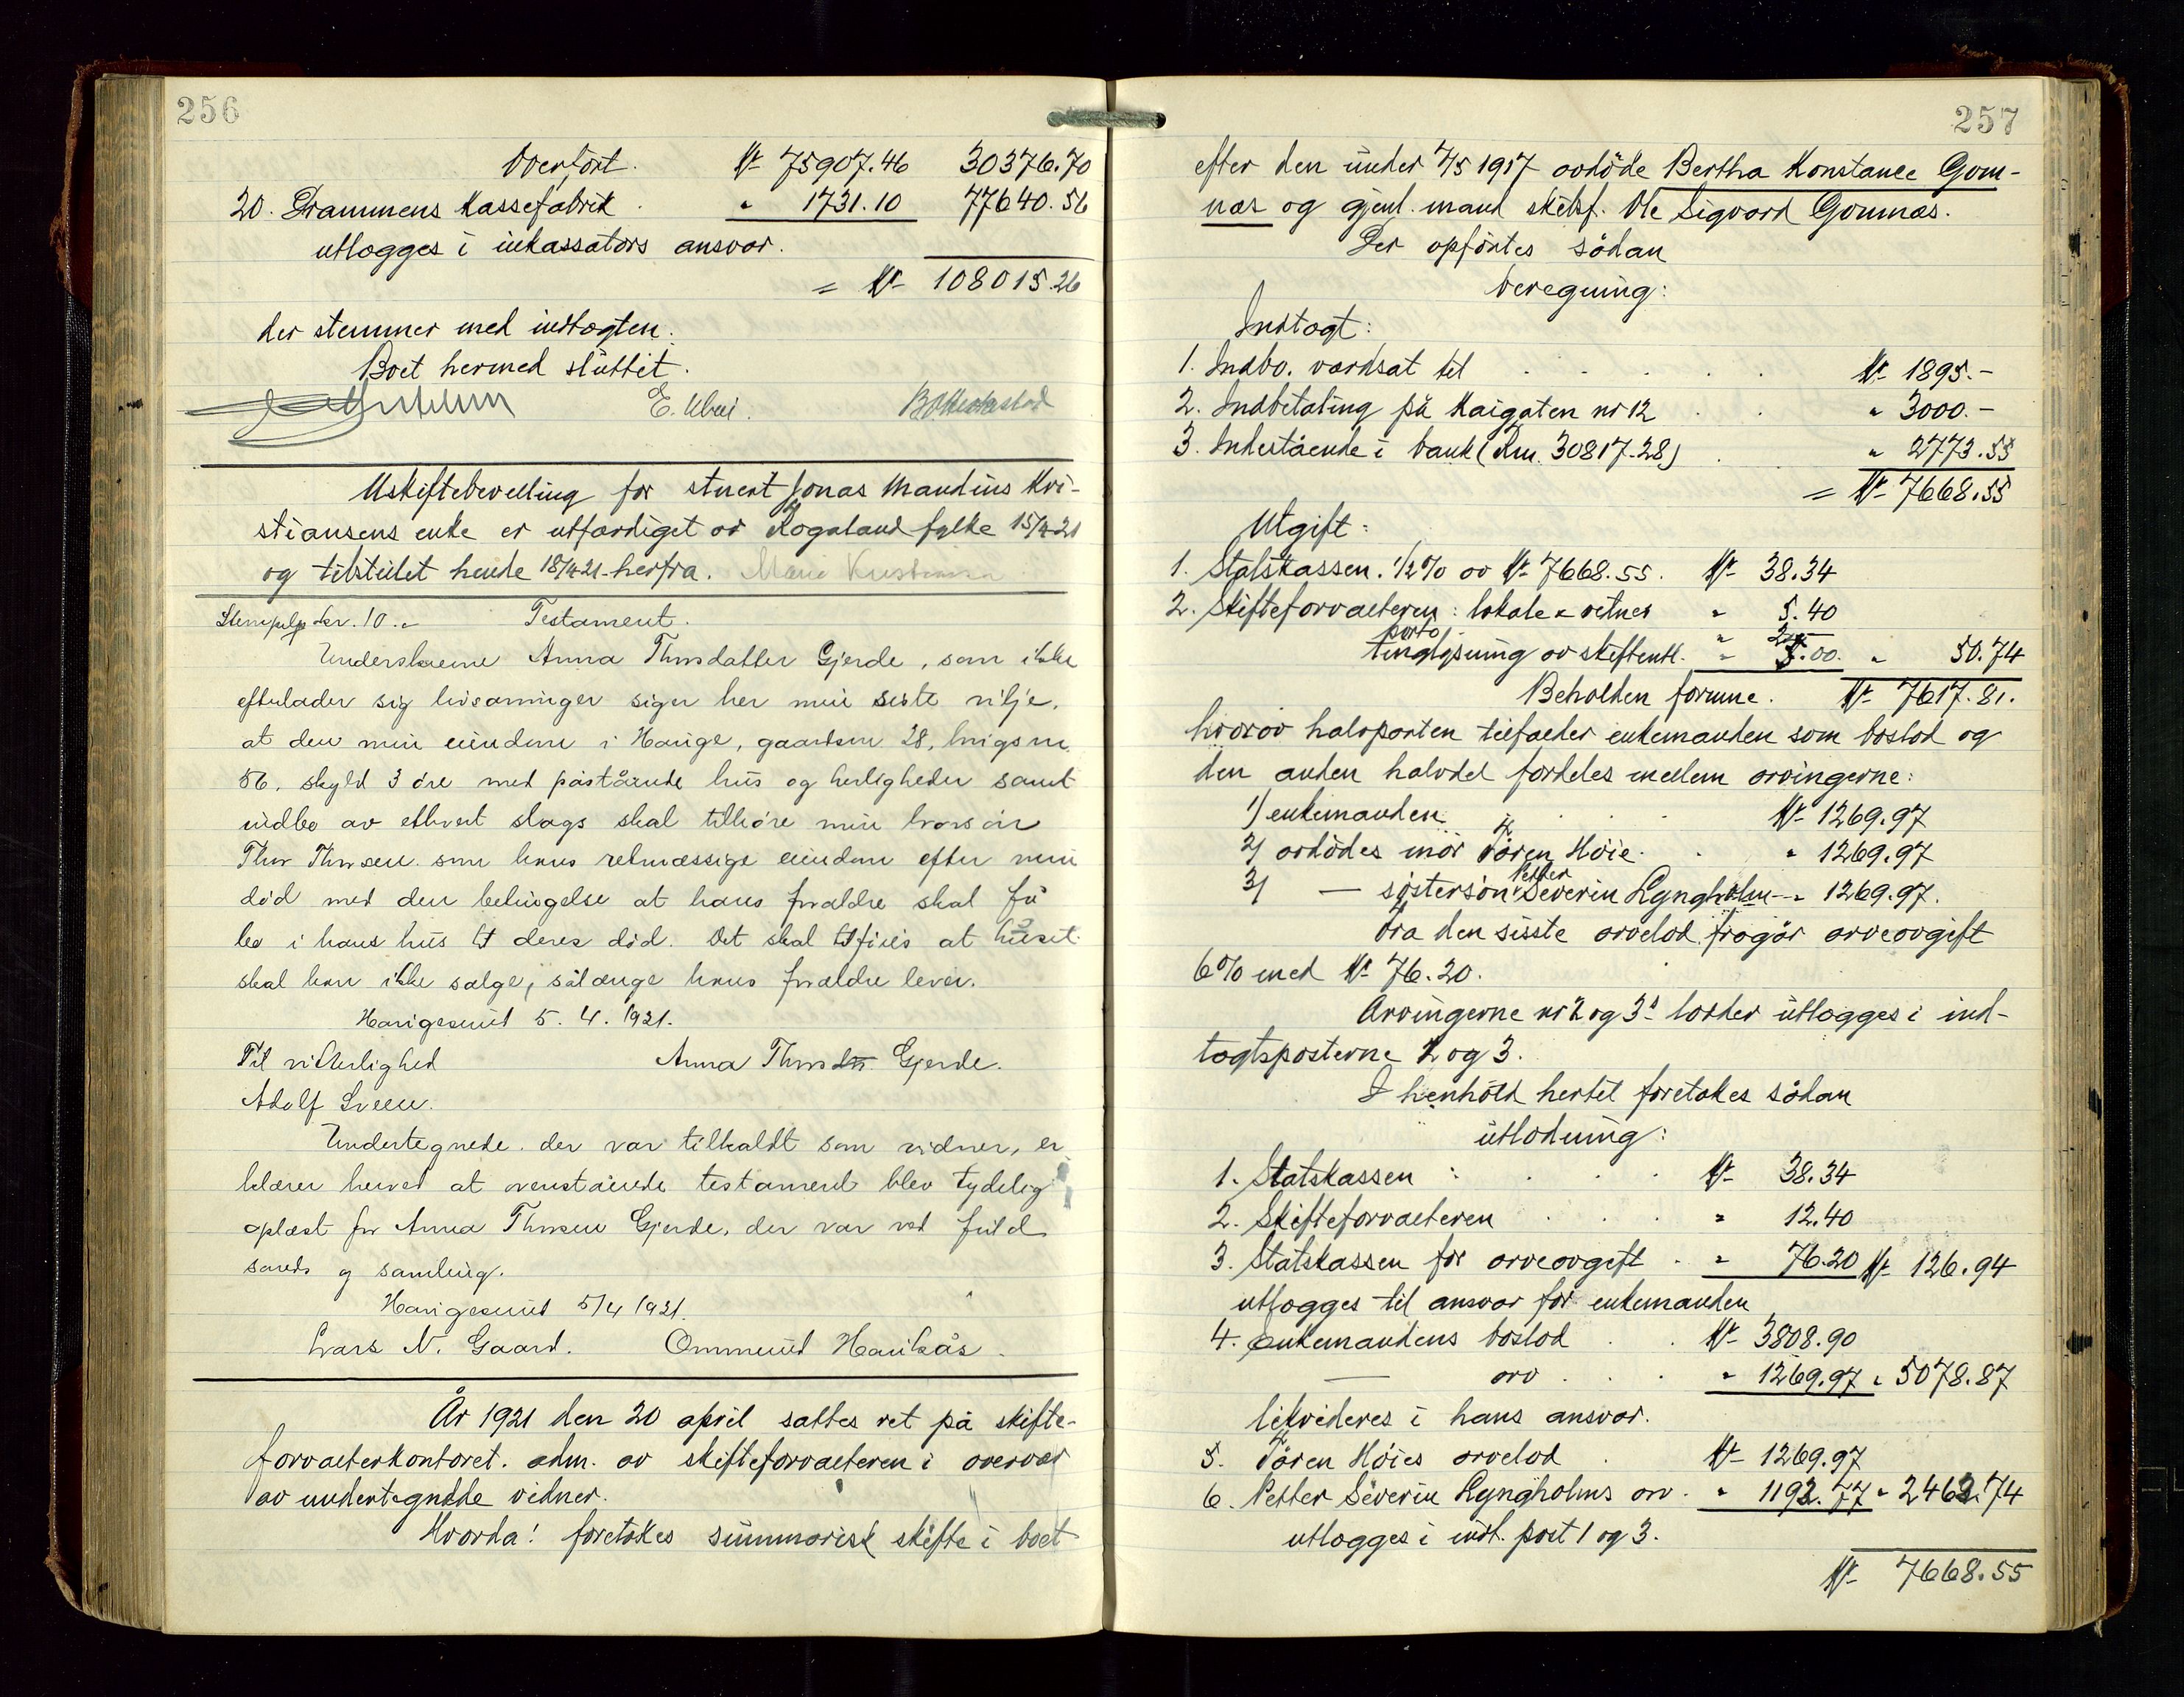 256
Overført. Kr 75907.46 30376.70
20. Drammens Kassefabrik. " 1731.10 77640.56
utlægges i inkassators ansvar.
= Kr 108015.26
der stemmer med indtægten.
Boet hermed sluttet.
E. Ubui.
Uskiftebevilling for stuert Jonas Maudius Kri-
stiansens enke er utfærdiget av Rogaland fylke 15/4 21
og tilstillet hende 18/4 21 herfra. Marie Kristiansen
Stempelp. kr. 10.- Testament.
Underskrevne Anna Thorsdatter Gjerde, som ikke
efterlader sig livsarvinger siger her min siste vilje,
at den min eiendom i Hauge, gaardsnr 28, brugsnr
56, skyld 3 øre med påstående hus og herligheder samt
indbo av ethvert slags skal tilhøre min brorsøn
Thor Thorsen som hans retmæssige eiendom efter min
død med den betingelse at hans forældre skal få
bo i hans hus til deres død. Det skal tilføies at huset
skal han ikke sælge, sålænge hans forældre lever.
Haugesund 5. 4. 1921.
Til vitterlighed Anna Thorsdtr Gjerde.
Adolf Sveen.
Undertegnede, der var tilkaldt som vidner, er
klærer herved at ovenstående testament blev tydelig
oplæst for Anna Thorsen Gjerde, der var ved fuld
sands og samling.
Haugesund 5/4 1921.
Lars N. Gaard. Ommund Haukås.
År 1921 den 20 april sattes ret på skifte-
forvalterkontoret, adm. av skifteforvalteren i overvær
av undertegnede vidner.
Hvorda! foretokes summarisk skifte i boet
257
efter den under 7/5 1917 avdöde Bertha Konstance Gom-
næs og gjenl. mand skibsf. Ole Sigvard Gomnæs.
Der opførtes sådan
beregning:
Indtægt:
1. Indbo, værdsat til Kr 1895.-
2. Indbetaling på Kaigaten nr 12 " 3000.-
3. Indestående i bank (Rm. 30817.28) " 2773.55
= Kr 7668.55
Utgift:
1. Statskassen. 1/2% av Kr 7668.55. Kr 38.34
2. Skifteforvalteren: lokale & vitner " 5.40
porto " 2.-
tinglysning av skifteutl. " 5.00. " 50.74
Beholden formue. Kr 7617.81.
hvorav halvparten tilfalder enkemanden som boslod og
den anden halvdel fordeles mellem arvingerne:
1) enkemanden Kr 1269.97
2) avdødes mor Tören Höie " 1269.97
Petter
3) — søstersøn Severin Lyngholm " 1269.97.
Fra den sisste arvelod fragår arveavgift
6% med Kr 76.20.
Arvingerne nr 2 og 3s lodder utlægges i ind-
tægtsposterne 1 og 3.
I henhold hertil foretokes sådan
utlodning:
1. Statskassen Kr 38.34
2. Skifteforvalteren " 12.40
3. Statskassen for arveavgift " 76.20 Kr 126.94
utlægges til ansvar for enkemanden
4. Enkemandens boslod Kr 3808.90
— arv " 1269.97 " 5078.87
likvideres i hans ansvar.
5. Tören Höies arvelod Kr 1269.97
6. Petter Severin Lyngholms arv. " 1192.77 " 2462.74
utlægges i indt. post 1 og 3.
Kr 7668.55